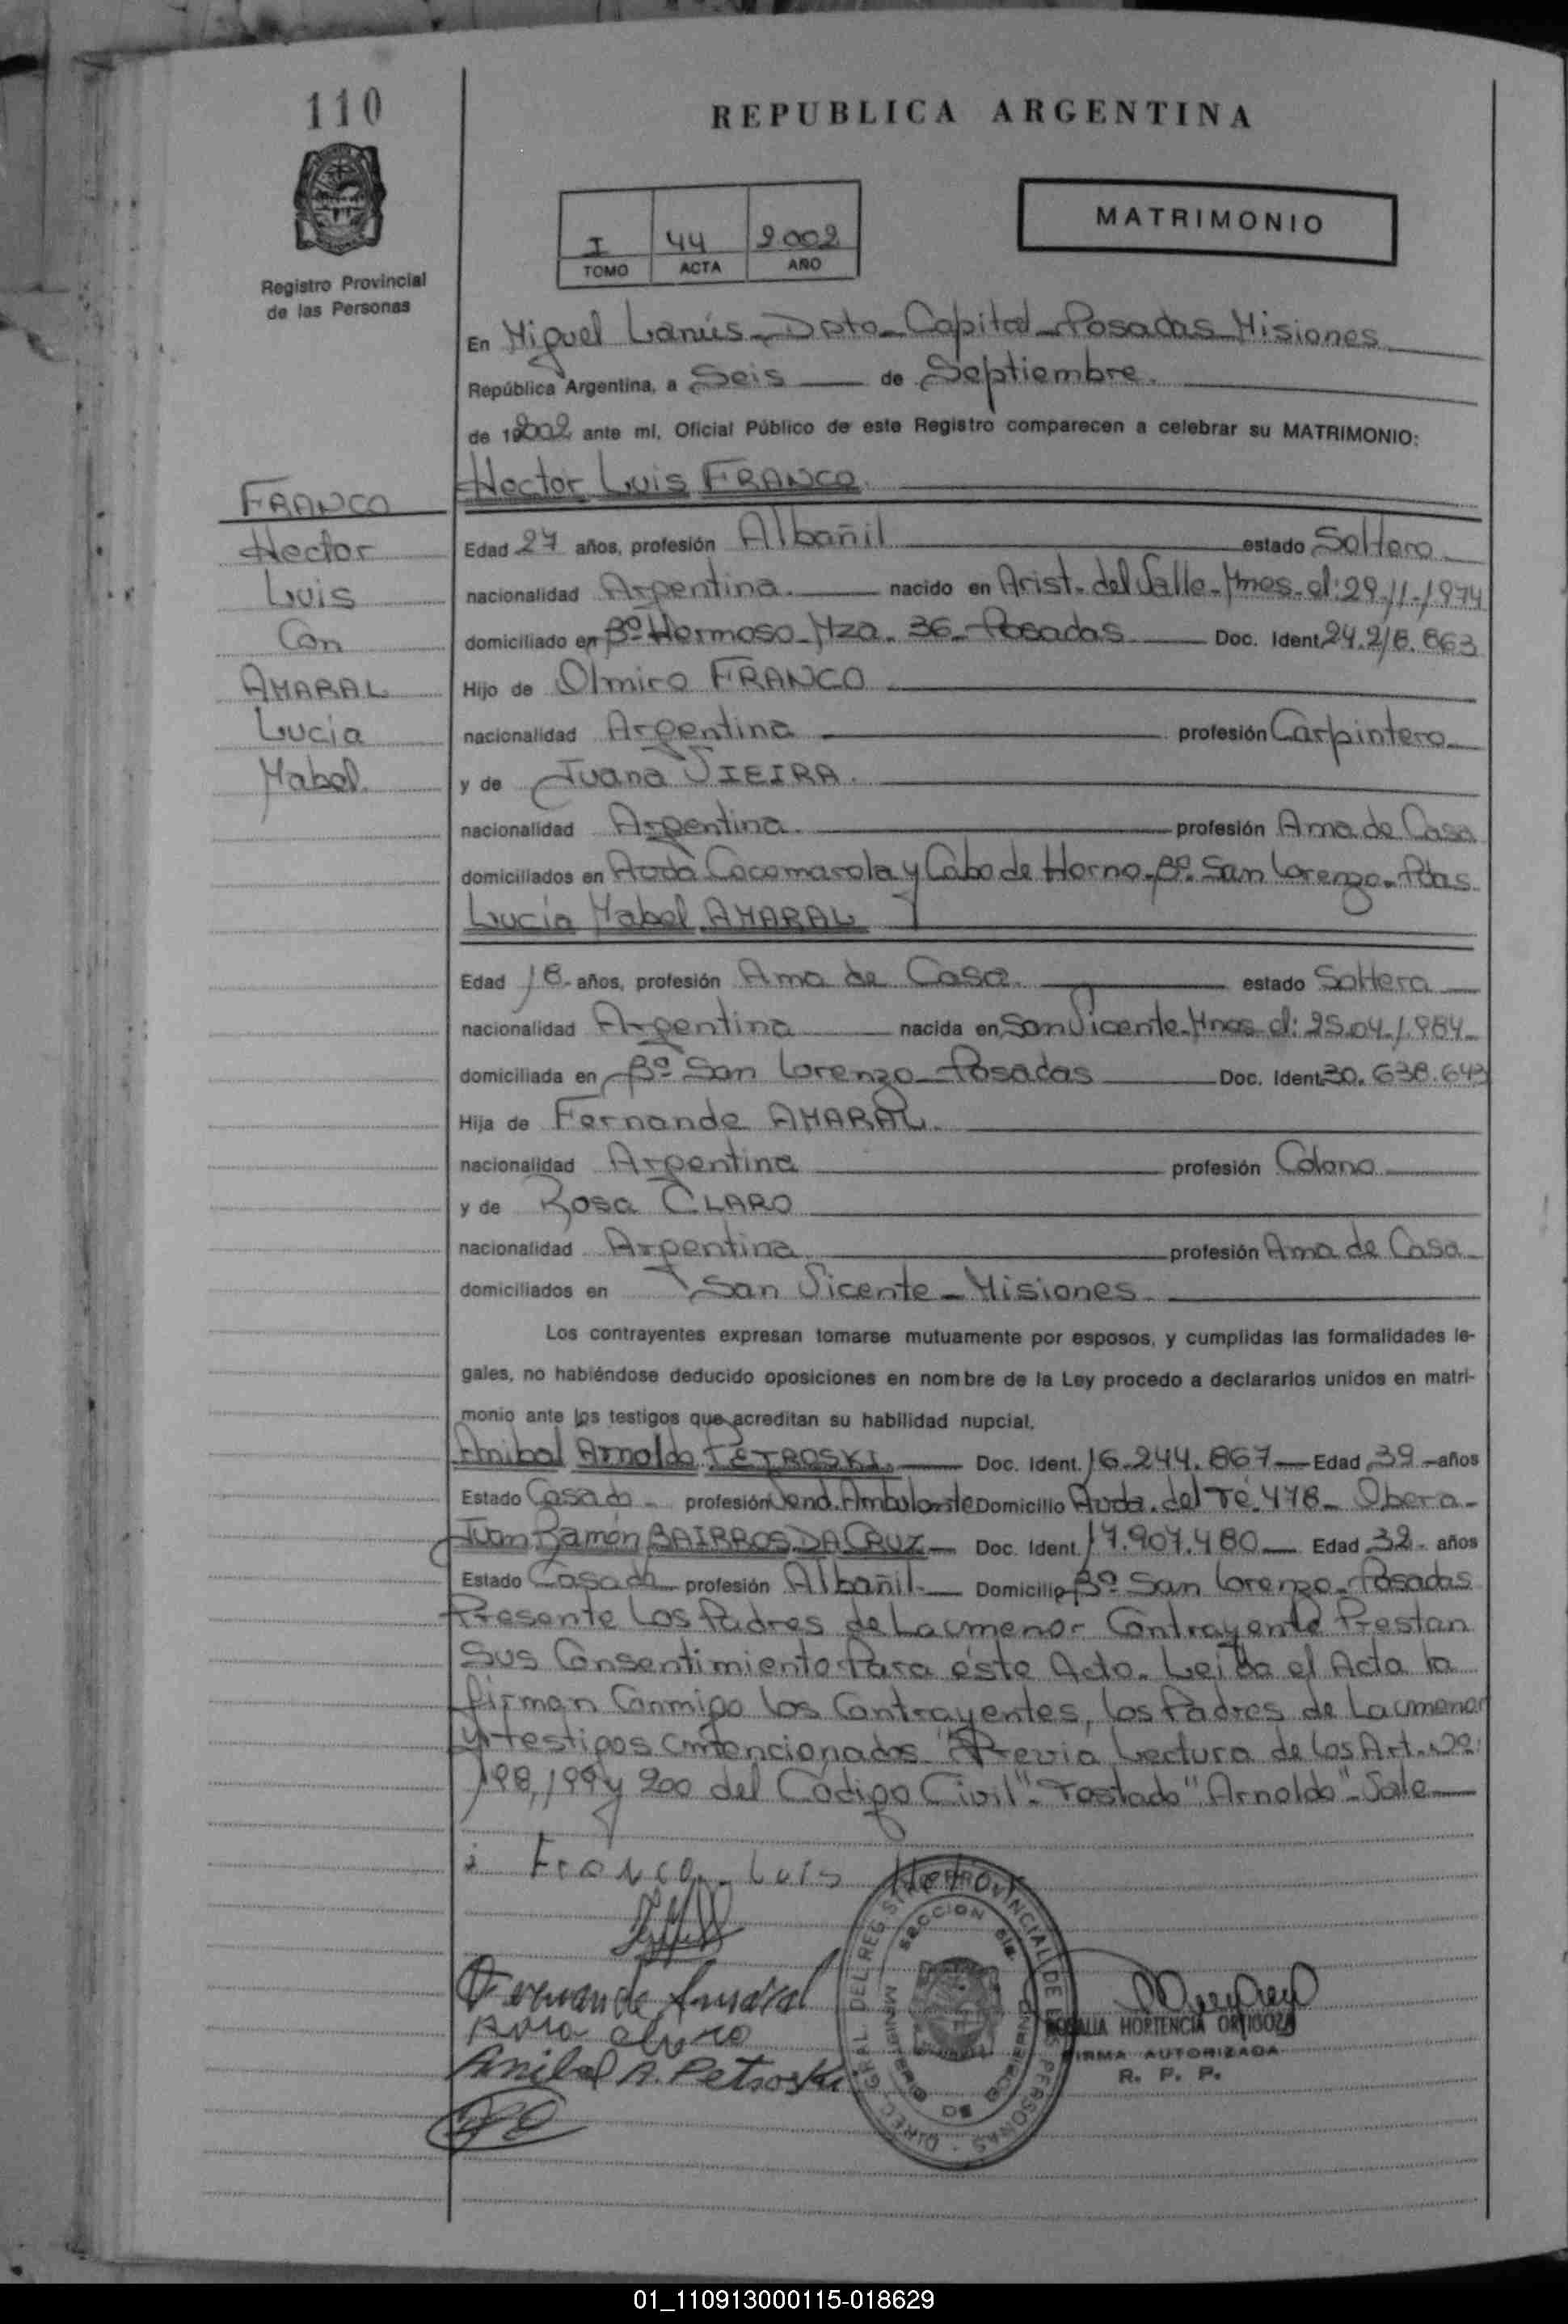 110
REPUBLICA ARGENTINA
MATRIMONIO
I 44 2.002
TOMO ACTA AÑO
Registro Provincial
de las Personas
En Miguel Lanús - Dpto - Capital - Posadas - Misiones
República Argentina, a Seis de Septiembre.
de 2002 ante mí, Oficial Público de este Registro comparecen a celebrar su MATRIMONIO:
Hector Luis FRANCO.
FRANCO
Hector
Luis
Con
AMARAL
Lucia
Mabel.
Edad 27 años, profesión Albañil estado Soltero
nacionalidad Argentina. nacido en Arist. del Valle - Mnes - el: 29-11-1974
domiciliado en Bº Hermoso - Mza. 36 - Posadas Doc. Ident. 24.218.863
Hijo de Olmiro FRANCO
nacionalidad Argentina profesión Carpintero
y de Juana VIEIRA.
nacionalidad Argentina. profesión Ama de Casa
domiciliados en Avda Cocomarola y Cabo de Horno - Bº San Lorenzo - Pdas
Lucia Mabel AMARAL
Edad 18 años, profesión Ama de Casa. estado Soltera
nacionalidad Argentina nacida en San Vicente - Mnes el: 25-04-1984
domiciliada en Bº San Lorenzo - Posadas Doc. Ident. 30.638.643
Hija de Fernande AMARAL.
nacionalidad Argentina profesión Colono
y de Rosa CLARO
nacionalidad Argentina profesión Ama de Casa
domiciliados en San Vicente - Misiones
Los contrayentes expresan tomarse mutuamente por esposos, y cumplidas las formalidades le-
gales, no habiéndose deducido oposiciones en nombre de la Ley procedo a declararlos unidos en matri-
monio ante los testigos que acreditan su habilidad nupcial.
Anibal Arnoldo PETROSKI. Doc. Ident. 16.244.867 Edad 39 años
Estado Casado profesión Vend. Ambulante Domicilio Avda. del Té. 478 - Obera -
Juan Ramón BAIRROS DA CRUZ Doc. Ident. 17.907.480 Edad 32 años
Estado Casado profesión Albañil. Domicilio Bº San Lorenzo - Posadas
Presente Los Padres de La menor Contrayente Prestan
Sus Consentimiento Para éste Acto. Leída el Acta la
firman Conmigo los Contrayentes, los Padres de La menor
y testigos mencionados "Previa Lectura de los Art. Nº
198, 199 y 200 del Código Civil" - Testado "Arnoldo" - Vale
Franco Luis Hetor
Fernande Amaral
Rosa Claro
Anibal A. Petroski
DIREC. GRAL. DEL REGISTRO PROVINCIAL DE LAS PERSONAS
ROSALIA HORTENCIA ORTIGOZA
FIRMA AUTORIZADA
R. P. P.
01_110913000115-018629